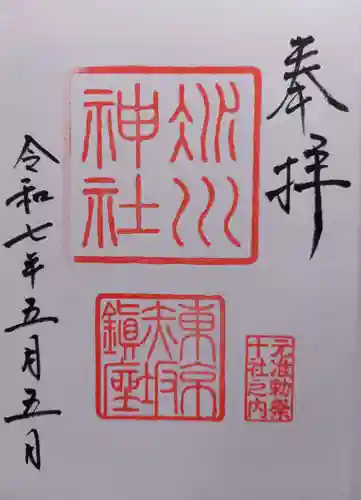 奉拝
氷川
神社
東京
赤坂
鎮座
元准勅祭
十社之内
令和七年五月五日